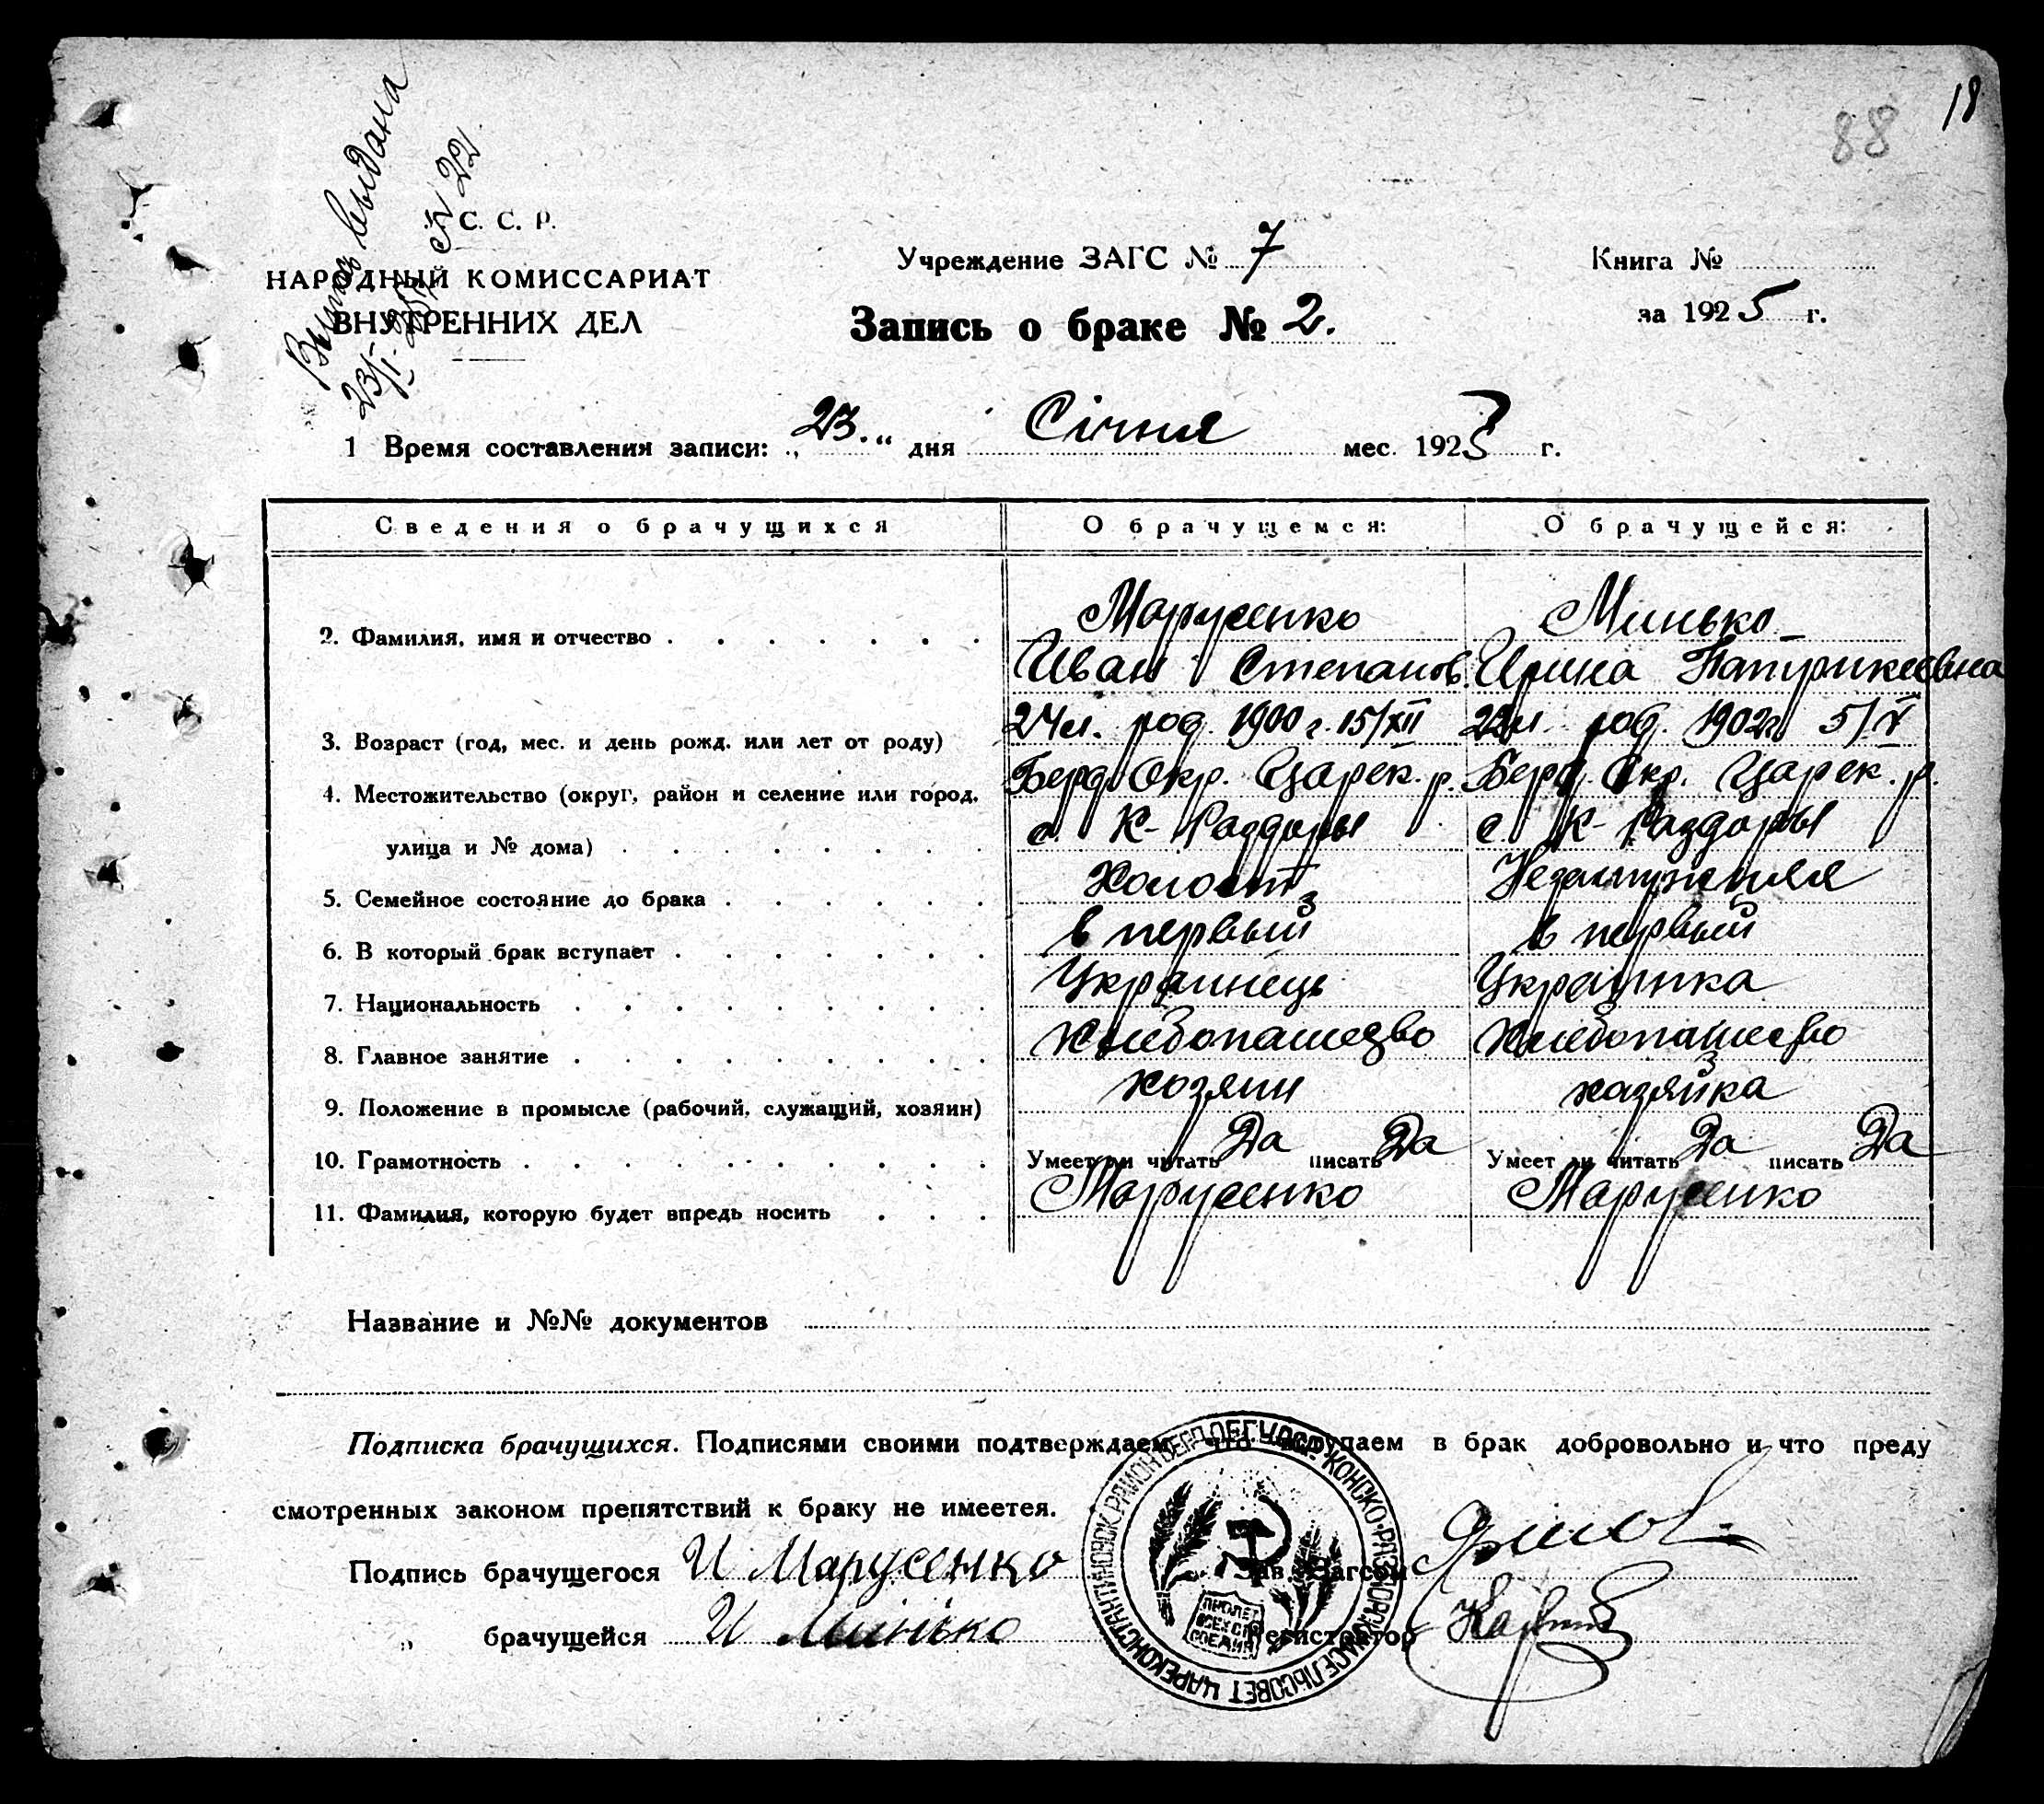 18
88
Выпись выдана
23/I-25г № 22
С. С. Р.
НАРОДНЫЙ КОМИССАРИАТ
ВНУТРЕННИХ ДЕЛ
Учреждение ЗАГС № 7
Книга №
Запись о браке № 2.
за 1925 г.
1 Время составления записи: „23.“ дня Січня мес. 1925 г.
Сведения о брачущихся О брачущемся: О брачущейся:
2. Фамилия, имя и отчество . . . . . . . Марусенко Минько
Иван Степанов. Ирина Патрикеевна
3. Возраст (год, мес. и день рожд. или лет от роду) 24л. род. 1900 г. 15/XII 22л. род. 1902г 5/V
4. Местожительство (округ, район и селение или город, Берд. Окр. Царек. р. Берд. Окр. Царек. р.
улица и № дома) . . . . . . . . с. К-Раздоры с. К-Раздоры
5. Семейное состояние до брака . . . . . . Холостъ Незамужняя
6. В который брак вступает . . . . . . . в первый в первый
7. Национальность . . . . . . . . . Украинець Украинка
8. Главное занятие . . . . . . . . . Хлебопашество Хлебопашество
9. Положение в промысле (рабочий, служащий, хозяин) хозяин хазяйка
10. Грамотность . . . . . . . . . . Умеет ли читать Да писать Да Умеет ли читать Да писать Да
11. Фамилия, которую будет впредь носить . . . Марусенко Марусенко
Название и №№ документов
Подписка брачущихся. Подписями своими подтверждаем, что вступаем в брак добровольно и что преду
смотренных законом препятствий к браку не имеется.
Подпись брачущегося И Марусенко Зав. Загсом
„ брачущейся И Минько Регистратор
КОНСКО-РАЗДОРСКИЙ СЕЛЬСОВЕТ ЦАРЕКОНСТАНТИНОВСК. РАЙОН БЕРД.
ПРОЛЕТ
ВСЕХ СТР
СОЕДИН